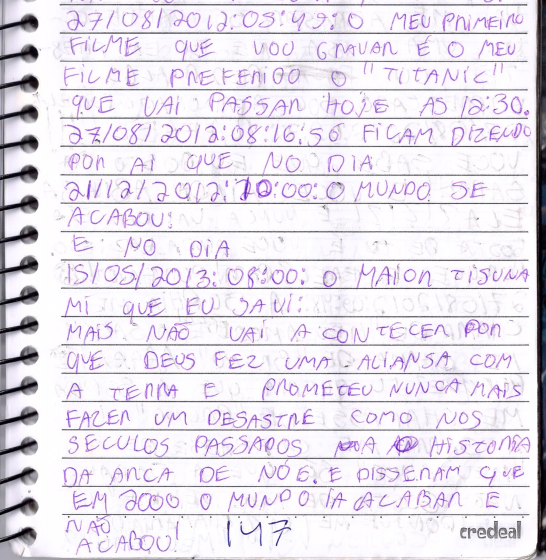 27/08/2012:05:49:O MEU PRIMEIRO
FILME QUE VOU GRAVAR É O MEU
FILME PREFERIDO O "TITANIC"
QUE VAI PASSAR HOJE AS 12:30.
27/08/2012:08:16:56 FICAM DIZENDO
POR AI QUE NO DIA
21/12/2012:10:00:O MUNDO SE
ACABOU:
E NO DIA
15/05/2013:08:00:O MAIOR TISUNA
MI QUE EU JA VI:
MAIS NÃO VAI ACONTECER POR
QUE DEUS FEZ UMA ALIANSA COM
A TERRA E PROMETEU NUNCA MAIS
FAZER UM DESASTRE COMO NOS
SECULOS PASSADOS A HISTORIA
DA ARCA DE NOÉ. E DISSERAM QUE
EM 2000 O MUNDO IA ACABAR E
NÃO
ACABOU! 147
credeal